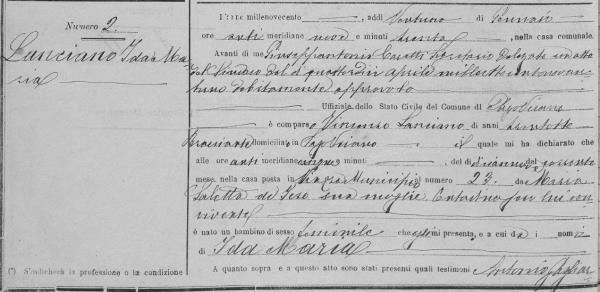 Numero 2.
Lanciano Ida Ma
ria
L'anno millenovecento , addì Ventuno di Gennaio
ore anti meridiane nove e minuti trenta , nella casa comunale.
Avanti di me Giuseppantonio Segretario Delegato con atto
del Sindaco del di aprile milleottocentonovan
debitamente approvato
Uffiziale dello Stato Civile del Comune di
è comparso Vincenzo Lanciano di anni trentotto
Bracciante domiciliato in il quale mi ha dichiarato che
alle ore anti meridiane cinque e minuti , del dì diciannove del corrente
mese, nella casa posta in Piazza Municipio numero 23 da Maria
Saletta de sua moglie Contadina con lui con
vivente
è nato un bambino di sesso femminile che egli mi presenta, e a cui dà i nomi
di Ida Maria
A quanto sopra e a questo atto sono stati presenti quali testimoni Antonio
(*) S'indicherà la professione o la condizione